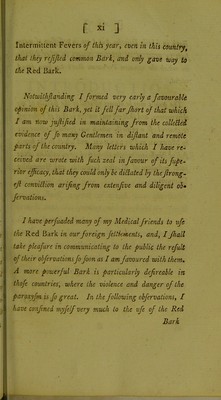 [ xi ]
Intermittent Fevers of this year, even in this country,
that they resisted common Bark, and only gave way to
the Red Bark.
Notwithstanding I formed very early a favourable
opinion of this Bark, yet it fell far short of that which
I am now justified in maintaining from the collected
evidence of so many Gentlemen in distant and remote
parts of the country. Many letters which I have re-
ceived are wrote with such zeal in favour of its supe-
rior efficacy, that they could only be dictated by the strong-
est conviction arising from extensive and diligent ob-
servations.
I have persuaded many of my Medical friends to use
the Red Bark in our foreign settlements, and, I shall
take pleasure in communicating to the public the result
of their observations so soon as I am favoured with them.
A more powerful Bark is particularly desireable in
those countries, where the violence and danger of the
paroxysm is so great. In the following observations, I
have confined myself very much to the use of the Red
Bark